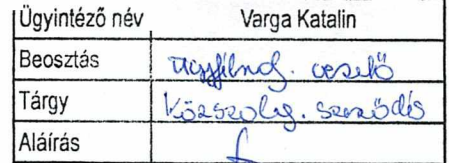 Ügyintéző név Varga Katalin
Beosztás ügyfélszolg. vezető
Tárgy Közszolg. szerződés
Aláírás